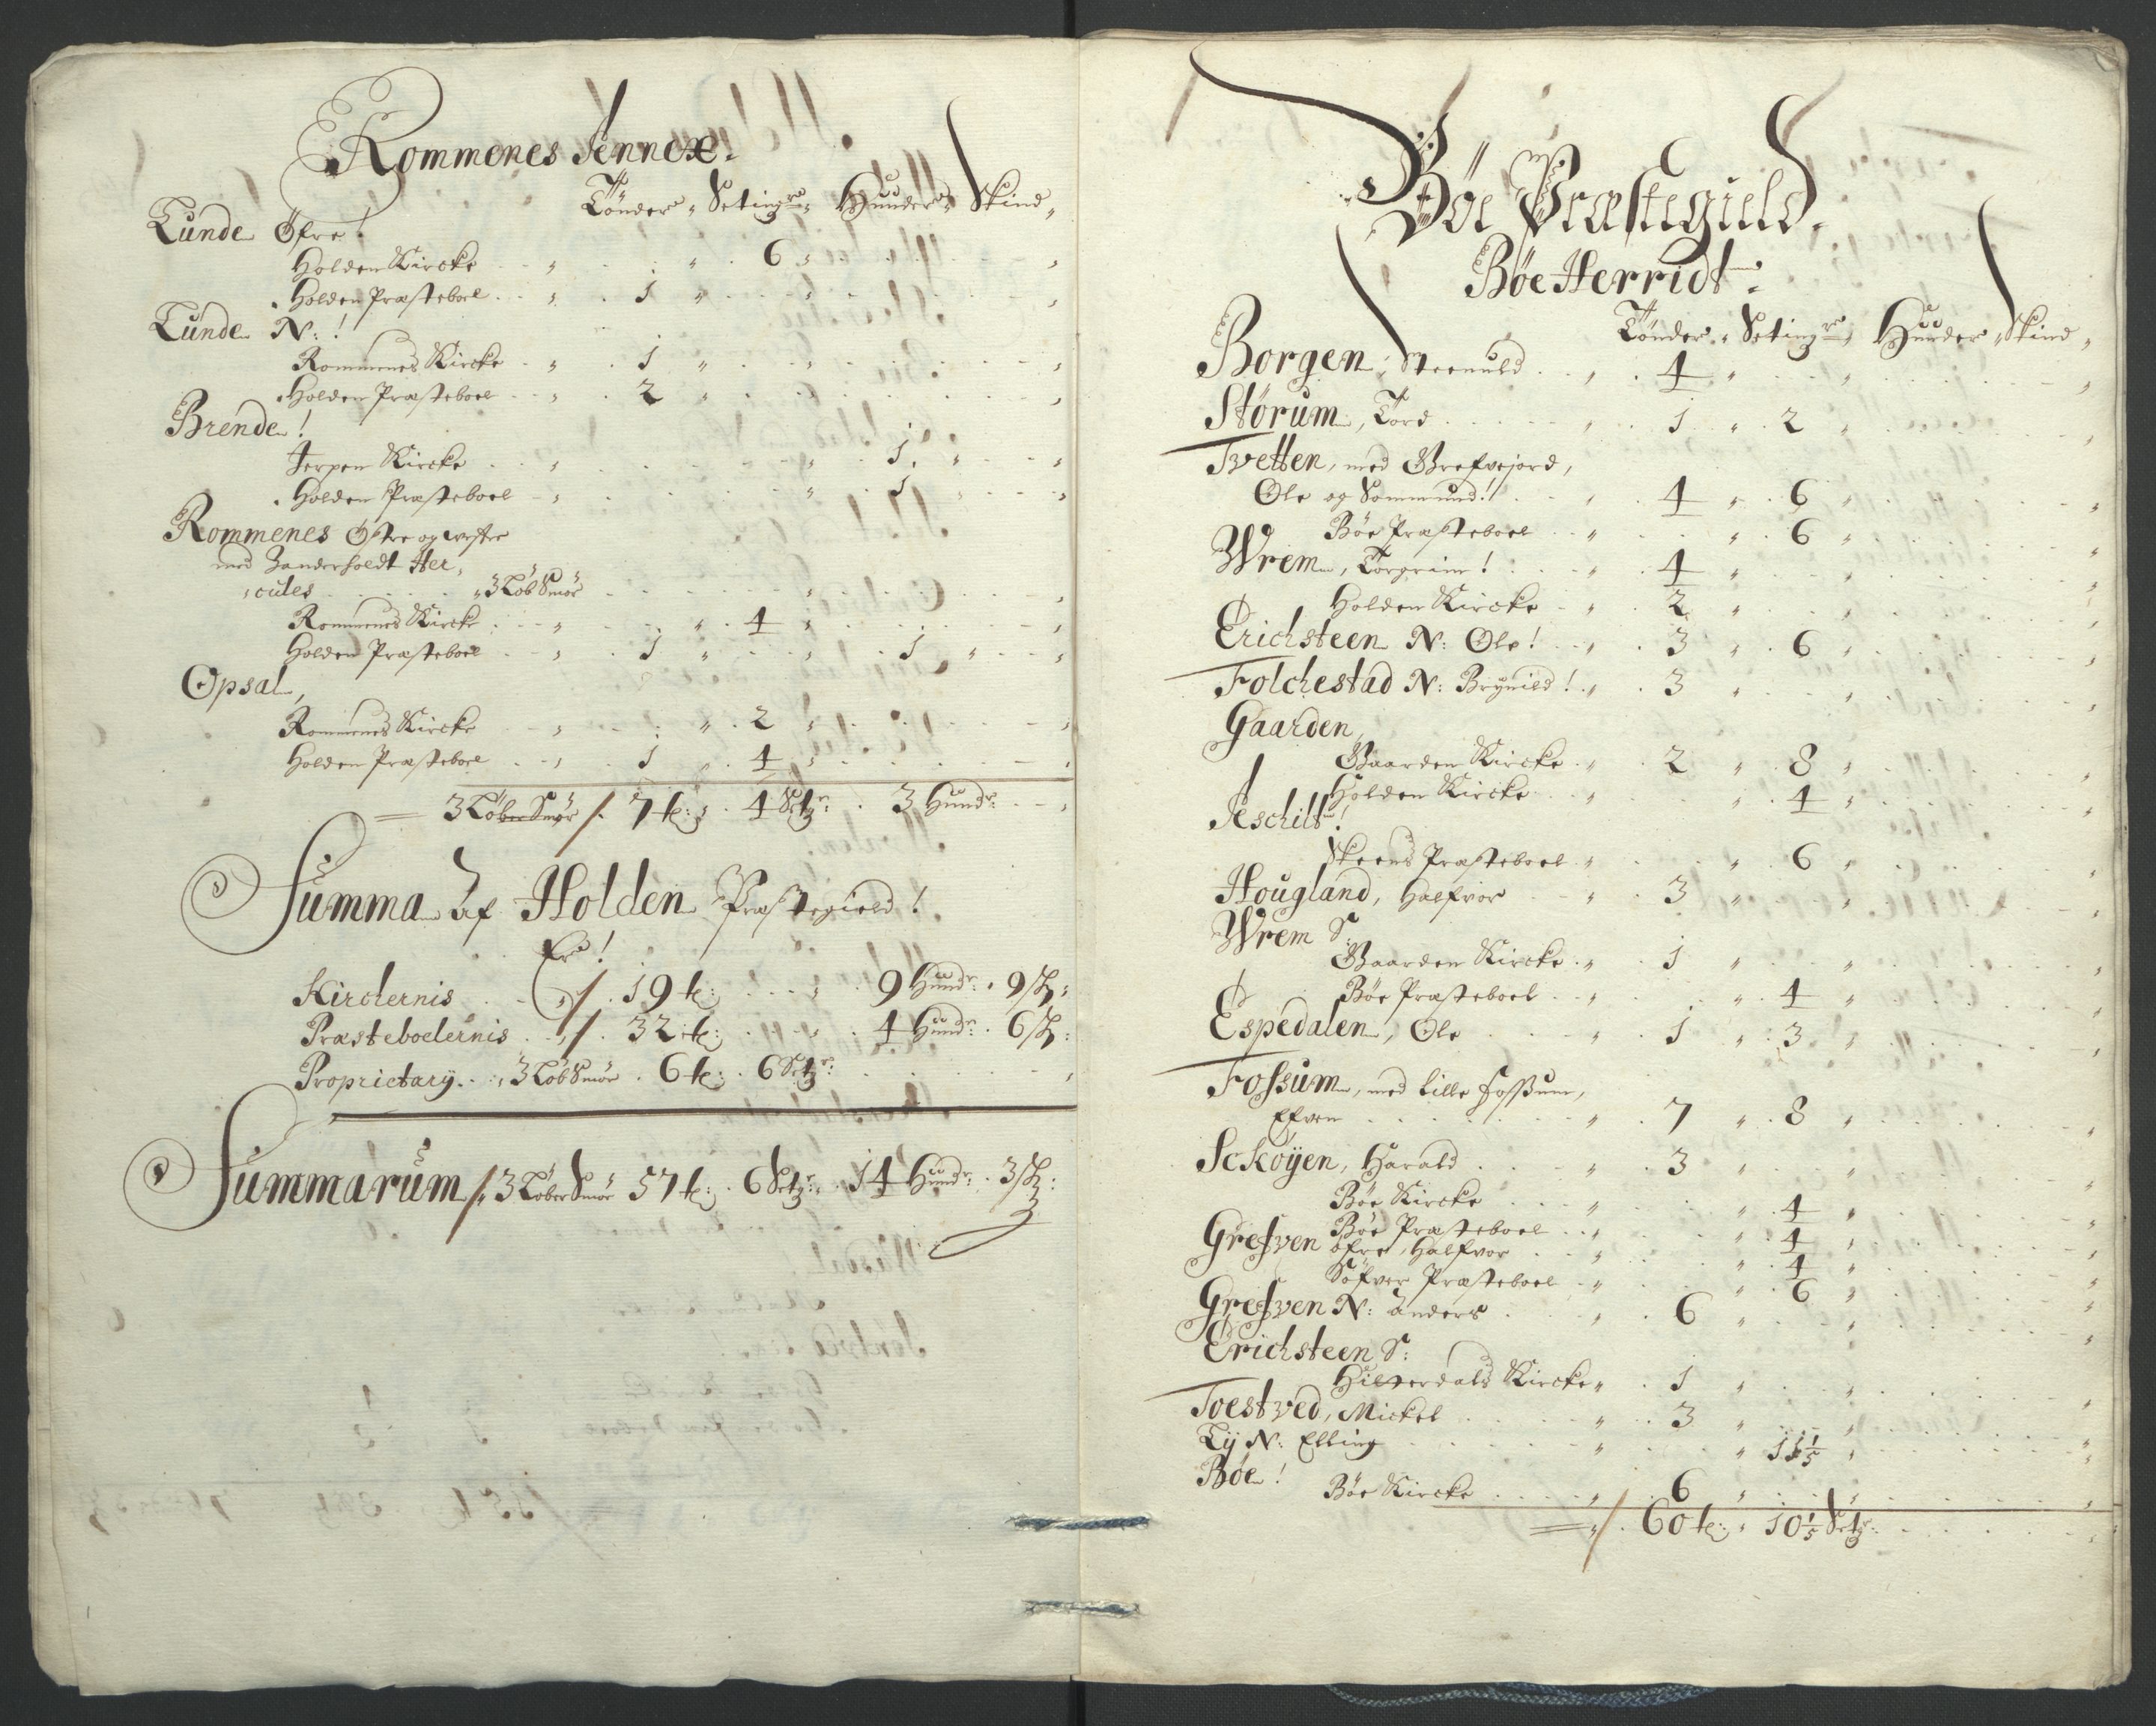 Rommenes Annex.
Tønder, Setingr, Huuder, Skind,
Lunde Øfre!
Holden Kircke 6
Holden Præsteboel 1
Lunde N:!
Rommenes Kircke 1
Holden Præsteboel 2
Brende!
Jerpen Kircke 1
Holden Præsteboel 1
Rommenes Østre og westre
med Zanderholdt Her,
cules 3 Løb Smør
Rommenes Kircke 4
Holden Præsteboel 1 1
Opsal,
Rommenes Kircke 2
Holden Præsteboel 1 4
3 Løber Smør 7 t: 4 Setgr: 3 Huudr:
Summa Af Holden Præstegield!
Er!
Kirchernis 19 t: 9 Huudr: 9 sk:
Præsteboelernis 32 t: 4 Huudr: 6 sk:
Proprietarÿ 3 Løb Smør 6 t: 6 Setgr:
Summarum 3 Løber Smør 57 t: 6 Setgr: 14 Huudr: 3 sk:
Bøe Præstegield.
Bøe Herridt.
Tønder, Setingr, Huuder, Skind,
Borgen, Steenuld 4
Størum, Tord 1 2
Tvetten, med Grefvejord,
Ole og Sommund! 4 6
Bøe Præsteboel 6
Wrem, Torgrim! 4
Holden Kircke 2
Erichsteen N: Ole! 3 6
Folchestad N: Brÿnild! 3
Gaarden,
Gaarden Kircke 2 8
Holden Kircke 4
Aeschilt!
Skeens Præsteboel 6
Hougland, Halfvor 3
Wrem S:
Gaarden Kircke 1
Bøe Præsteboel 4
Espedalen, Ole 1 3
Fossum, med lille Fossum,
Efven 7 8
Sckøÿen, Harald 3
Bøe Kircke 4
Bøe Præsteboel 4
Grefven øfre, Halfvor 4
Søfver Præsteboel 6
Grefven N: Anders 6
Erichsteen S:
Hitterdals Kircke 1
Toestved, Mickel 3
Lÿ N: Elling 11 1/5
Bøe!
Bøe Kircke 6
60 t: 10 1/5 Setgr: